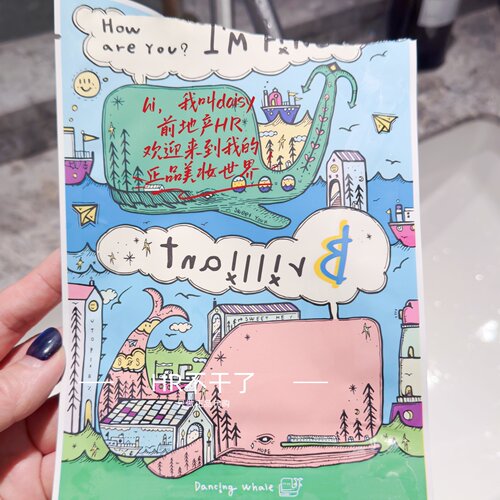 How
are You?
I'm Fine
Hi, 我叫daisy
前地产HR
欢迎来到我的
正品美妆世界
Brilliant
HR不干了
HOPE
Dancing whale